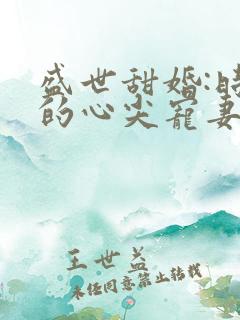 盛世甜婚:
的心尖宠妻
王世益
未经同意禁止转载